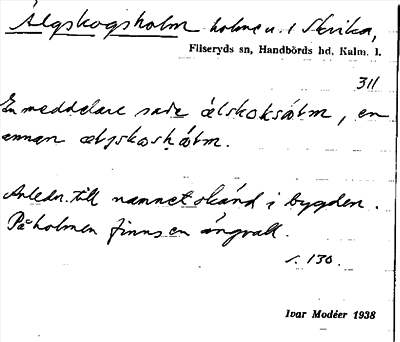 Älgskogsholm holme n. i Skvika,
Fliseryds sn, Handbörds hd, Kalm. l.
311
En meddelare sade älskoksåtm, en
annan
Anledn. till namnet okänd i bygden.
På holmen finns en ängvall.
s. 130.
Ivar Modéer 1938